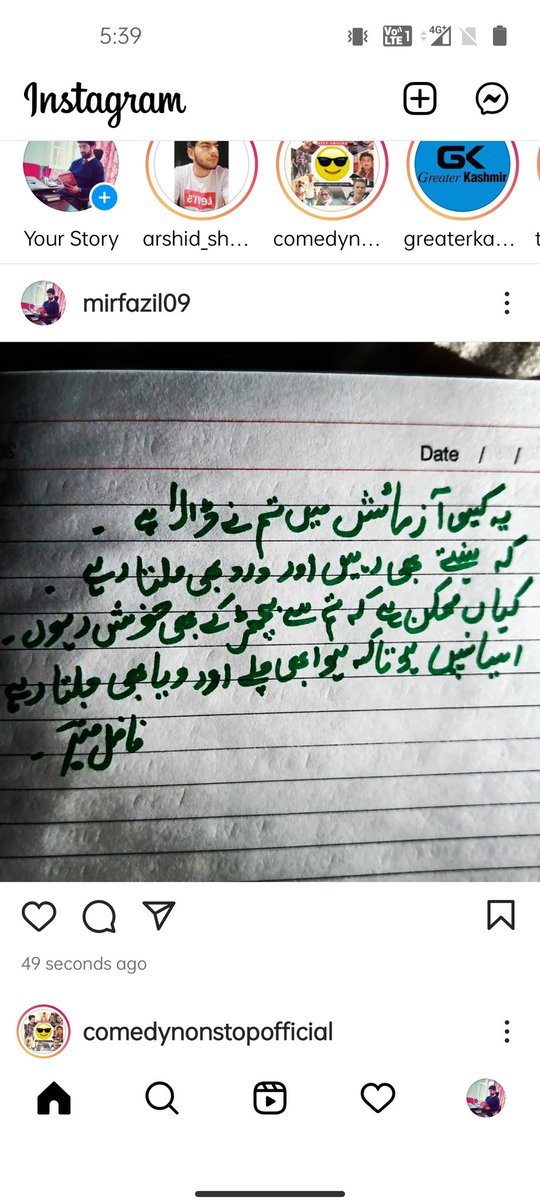 5:39
Vo LTE 1 4G+
Instagram
GK
Greater Kashmir
LEVI'S
Your Story
arshid_sh...
comedyn...
greaterka...
mirfazil09
Date / /
یہ کیسی آزمائش میں تم نے ڈالا ہے ۔
کہ ہنستے بھی رہیں اور درد بھی ملتا رہے ۔
کیاں ممکن ہے کہ تم سے بچھڑ کے بھی خوش رہوں ۔
ایسا نہیں ہوتا کہ ہوا بھی چلے اور دیا بھی جلتا رہے
فاضل میر ۔
49 seconds ago
comedynonstopofficial